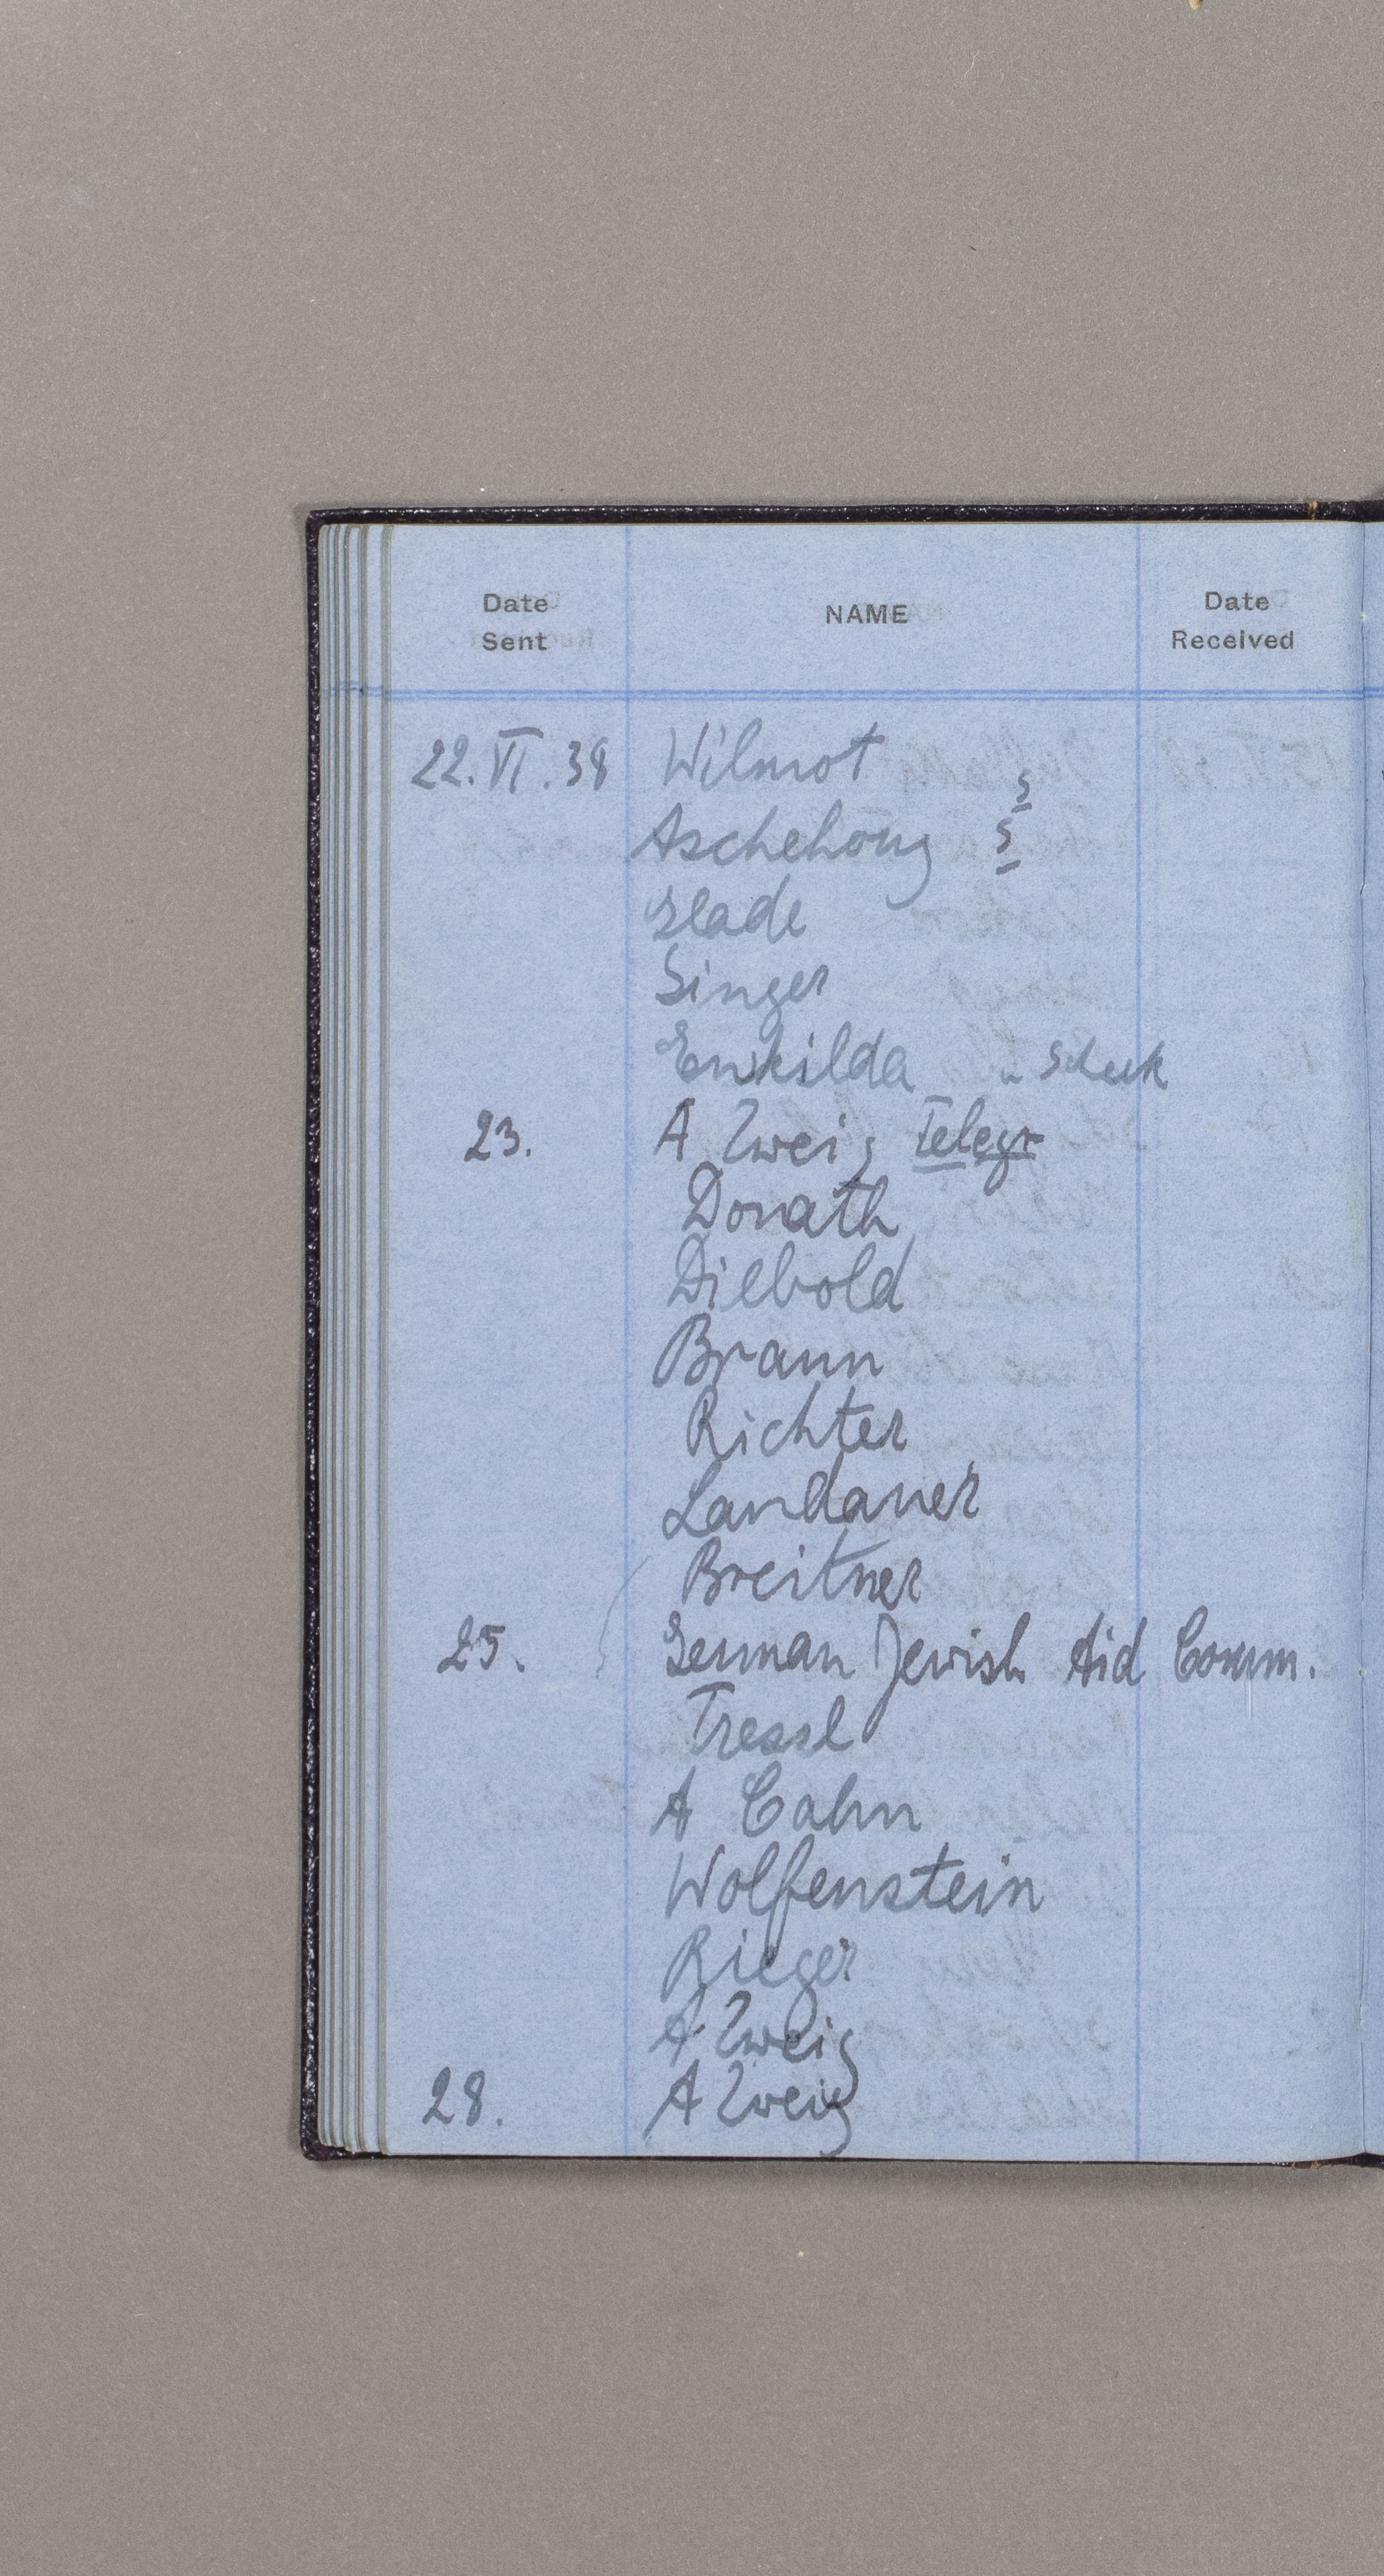 Date Sent NAME Date Received
22.VI.38 Wilmot
Aschehoug
Slade
Singer
Enskilda Scheck
23. A Zweig Telegr
Donath
Diebold
Braun
Richter
Landauer
Breitner
25. German Jewish Aid Comm.
Tressl
A Cahn
Wolfenstein
Rieger
A Zweig
28. A Zweig